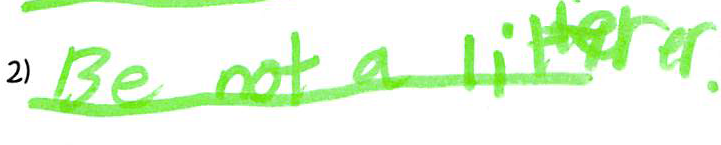 2) Be not a litterer.